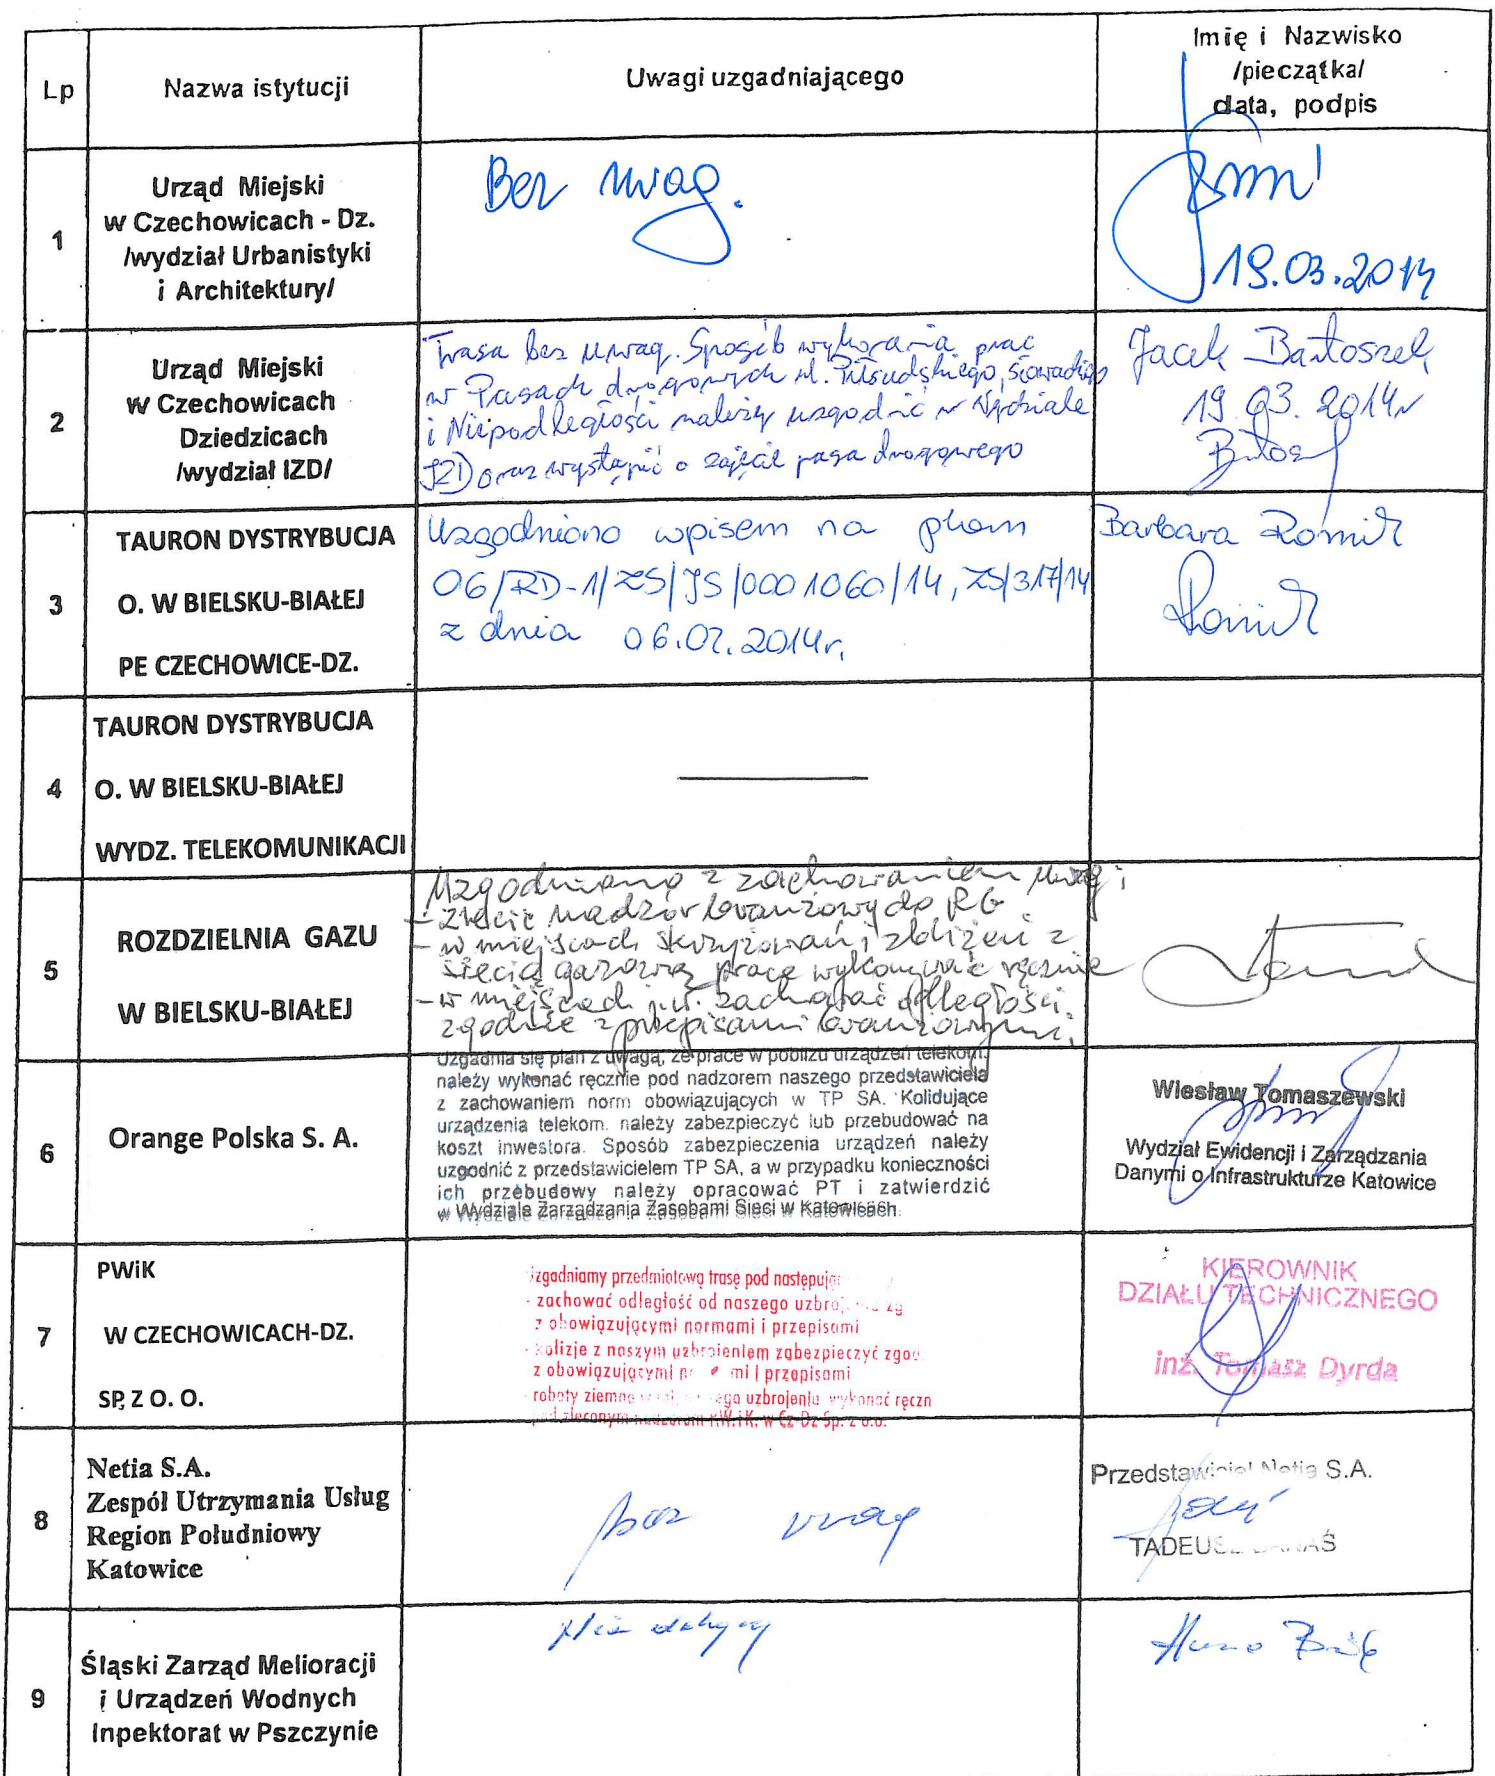 Lp
Nazwa istytucji
Uwagi uzgadniającego
Imię i Nazwisko
/pieczątka/
data, podpis
1
Urząd Miejski
w Czechowicach - Dz.
/wydział Urbanistyki
i Architektury/
Bez uwag.
19.03.2014
2
Urząd Miejski
w Czechowicach
Dziedzicach
/wydział IZD/
Trasa bez uwag. Sposób wykonania prac
w Pasach drogowych ul. Piłsudskiego, Słowackiego
i Niepodległości należy uzgodnić w Wydziale
IZD oraz wystąpić o zajęcie pasa drogowego
Jacek Bartoszek
19.03.2014r
3
TAURON DYSTRYBUCJA
O. W BIELSKU-BIAŁEJ
PE CZECHOWICE-DZ.
Uzgodniono wpisem na planie
06/RD-1/ZS/JS/0001060/14, ZS/317/14
z dnia 06.02.2014r.
Barbara
4
TAURON DYSTRYBUCJA
O. W BIELSKU-BIAŁEJ
WYDZ. TELEKOMUNIKACJI
5
ROZDZIELNIA GAZU
W BIELSKU-BIAŁEJ
Uzgodniono z zachowaniem uwag:
- zlecić nadzór branżowy do RG
- w miejscach skrzyżowań i zbliżeń z
siecią gazową prace wykonywać ręcznie
- w miejscach j.w. zachować odległości
zgodnie z przepisami branżowymi.
6
Orange Polska S. A.
Uzgadnia się plan z uwagą, że prace w pobliżu urządzeń telekom.
należy wykonać ręcznie pod nadzorem naszego przedstawiciela
z zachowaniem norm obowiązujących w TP SA. Kolidujące
urządzenia telekom. należy zabezpieczyć lub przebudować na
koszt inwestora. Sposób zabezpieczenia urządzeń należy
uzgodnić z przedstawicielem TP SA, a w przypadku konieczności
ich przebudowy należy opracować PT i zatwierdzić
w Wydziale Zarządzania Zasobami Sieci w Katowicach.
Wiesław Tomaszewski
Wydział Ewidencji i Zarządzania
Danymi o Infrastrukturze Katowice
7
PWiK
W CZECHOWICACH-DZ.
SP. Z O. O.
zgadniamy przedmiotową trasę pod następują
- zachować odległość od naszego uzbroj zg
z obowiązującymi normami i przepisami
- kolizje z naszym uzbrojeniem zabezpieczyć zgod
z obowiązującymi n mi i przepisami
- roboty ziemne ego uzbrojenia wykonać ręczn
pod zleconym nadzorem P.W.i K. w Cz-Dz Sp. z o.o.
KIEROWNIK
DZIAŁU TECHNICZNEGO
inż. Tomasz Dyrda
8
Netia S.A.
Zespół Utrzymania Usług
Region Południowy
Katowice
bez uwag
Przedstawiciel Netia S.A.
TADEUSZ
9
Śląski Zarząd Melioracji
i Urządzeń Wodnych
Inpektorat w Pszczynie
Nie dotyczy